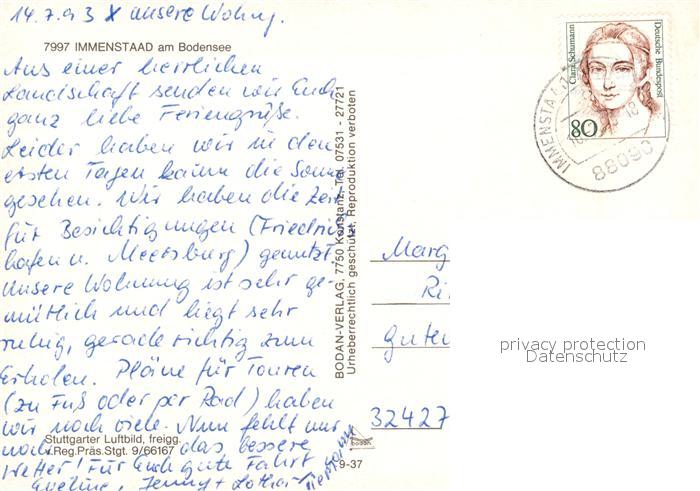 14.7.93 X unsere Wohng.
7997 IMMENSTAAD am Bodensee
Aus einer herrlichen
Landschaft senden wir Euch
ganz liebe Feriengrüße.
Leider haben wir in den
ersten Tagen kaum die Sonne
gesehen. Wir haben die Zeit
für Besichtigungen (Friedrichs-
hafen u. Meersburg) genutzt.
Unsere Wohnung ist sehr ge-
mütlich und liegt sehr
ruhig, gerade richtig zum
Erholen. Pläne für Touren
(zu Fuß oder per Rad) haben
wir noch viele. Nun fehlt nur
noch das bessere
Wetter! Für Euch gute Fahrt
Eveline, Jenny + Lothar
Stuttgarter Luftbild, freigg.
v.Reg.Präs.Stgt. 9/66167
9-37
BODAN-VERLAG, 7750 Konstanz, Tel. 07531 - 27721
Urheberrechtlich geschützt, Reproduktion verboten
Clara Schumann
Deutsche Bundespost
80
IMMENSTAAD
88090
Marg
Ri
Guten
32427
privacy protection
Datenschutz